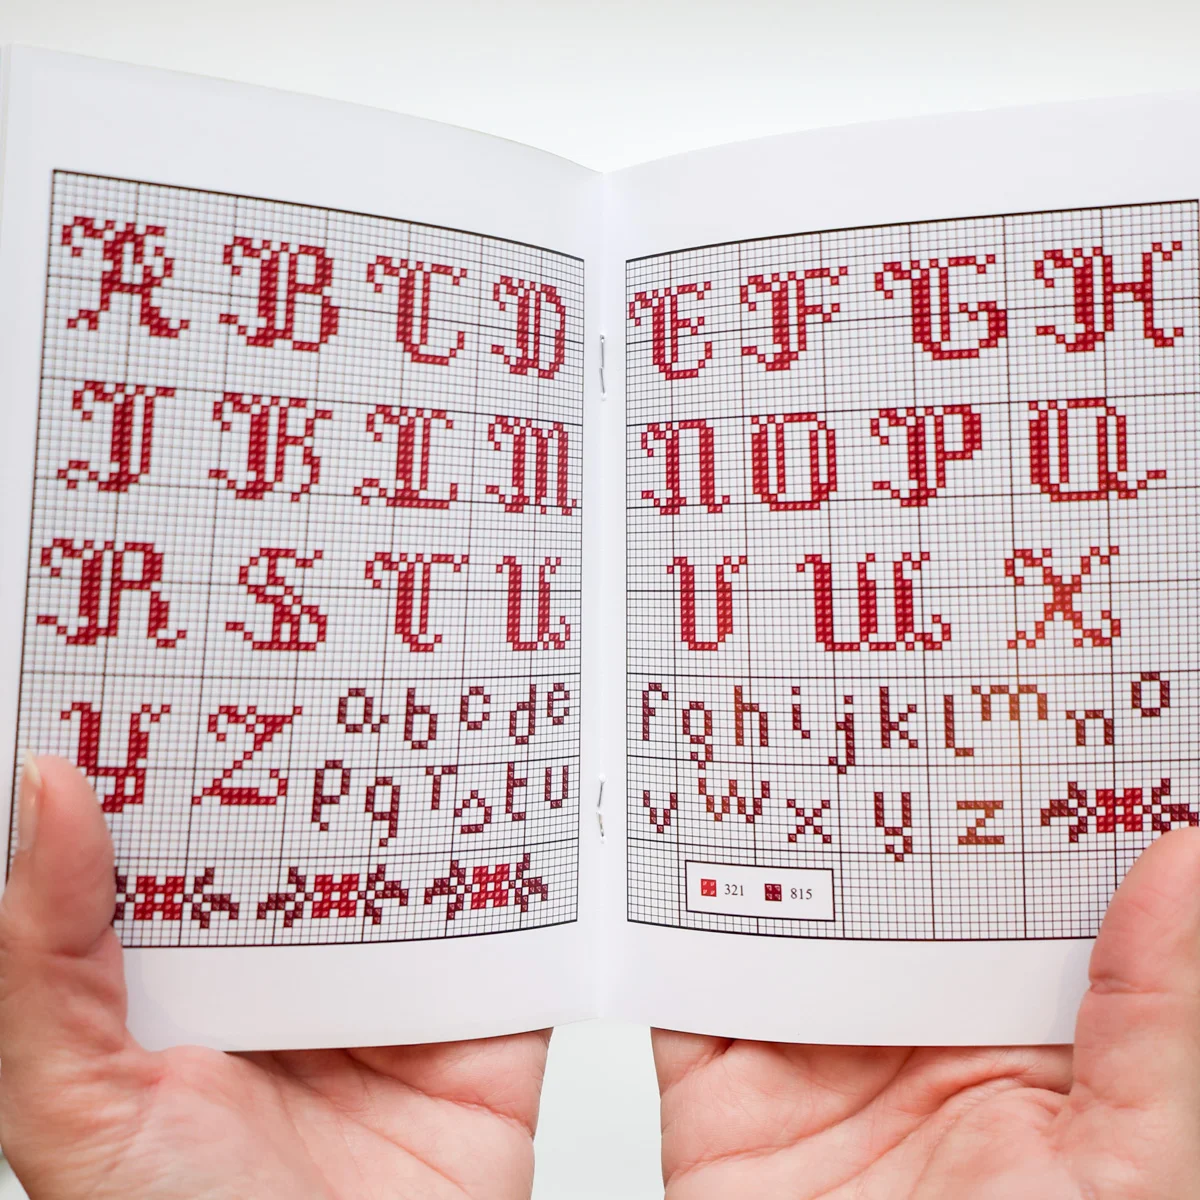 A B C D E F G H
I K L M N O P Q
R S T U V W X
Y Z a b c d e f g h i j k l m n o
p q r s t u v w x y z
321 815